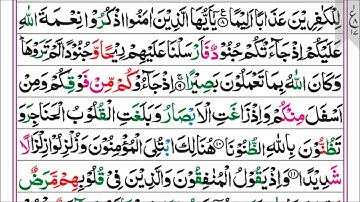 لِّلْكٰفِرِيْنَ عَذَابًا اَلِيْمًا ۟ يٰۤاَيُّهَا الَّذِيْنَ اٰمَنُوا اذْكُرُوْا نِعْمَةَ اللّٰهِ
عَلَيْكُمْ اِذْ جَآءَتْكُمْ جُنُوْدٌ فَاَرْسَلْنَا عَلَيْهِمْ رِيْحًا وَّجُنُوْدًا لَّمْ تَرَوْهَا ؕ
وَكَانَ اللّٰهُ بِمَا تَعْمَلُوْنَ بَصِيْرًا ۟ اِذْ جَآءُوْكُمْ مِّنْ فَوْقِكُمْ وَمِنْ
اَسْفَلَ مِنْكُمْ وَاِذْ زَاغَتِ الْاَبْصَارُ وَبَلَغَتِ الْقُلُوْبُ الْحَنَاجِرَ وَ
تَظُنُّوْنَ بِاللّٰهِ الظُّنُوْنَا ۟ هُنَالِكَ ابْتُلِيَ الْمُؤْمِنُوْنَ وَزُلْزِلُوْا زِلْزَالًا
شَدِيْدًا ۟ وَاِذْ يَقُوْلُ الْمُنٰفِقُوْنَ وَالَّذِيْنَ فِيْ قُلُوْبِهِمْ مَّرَضٌ